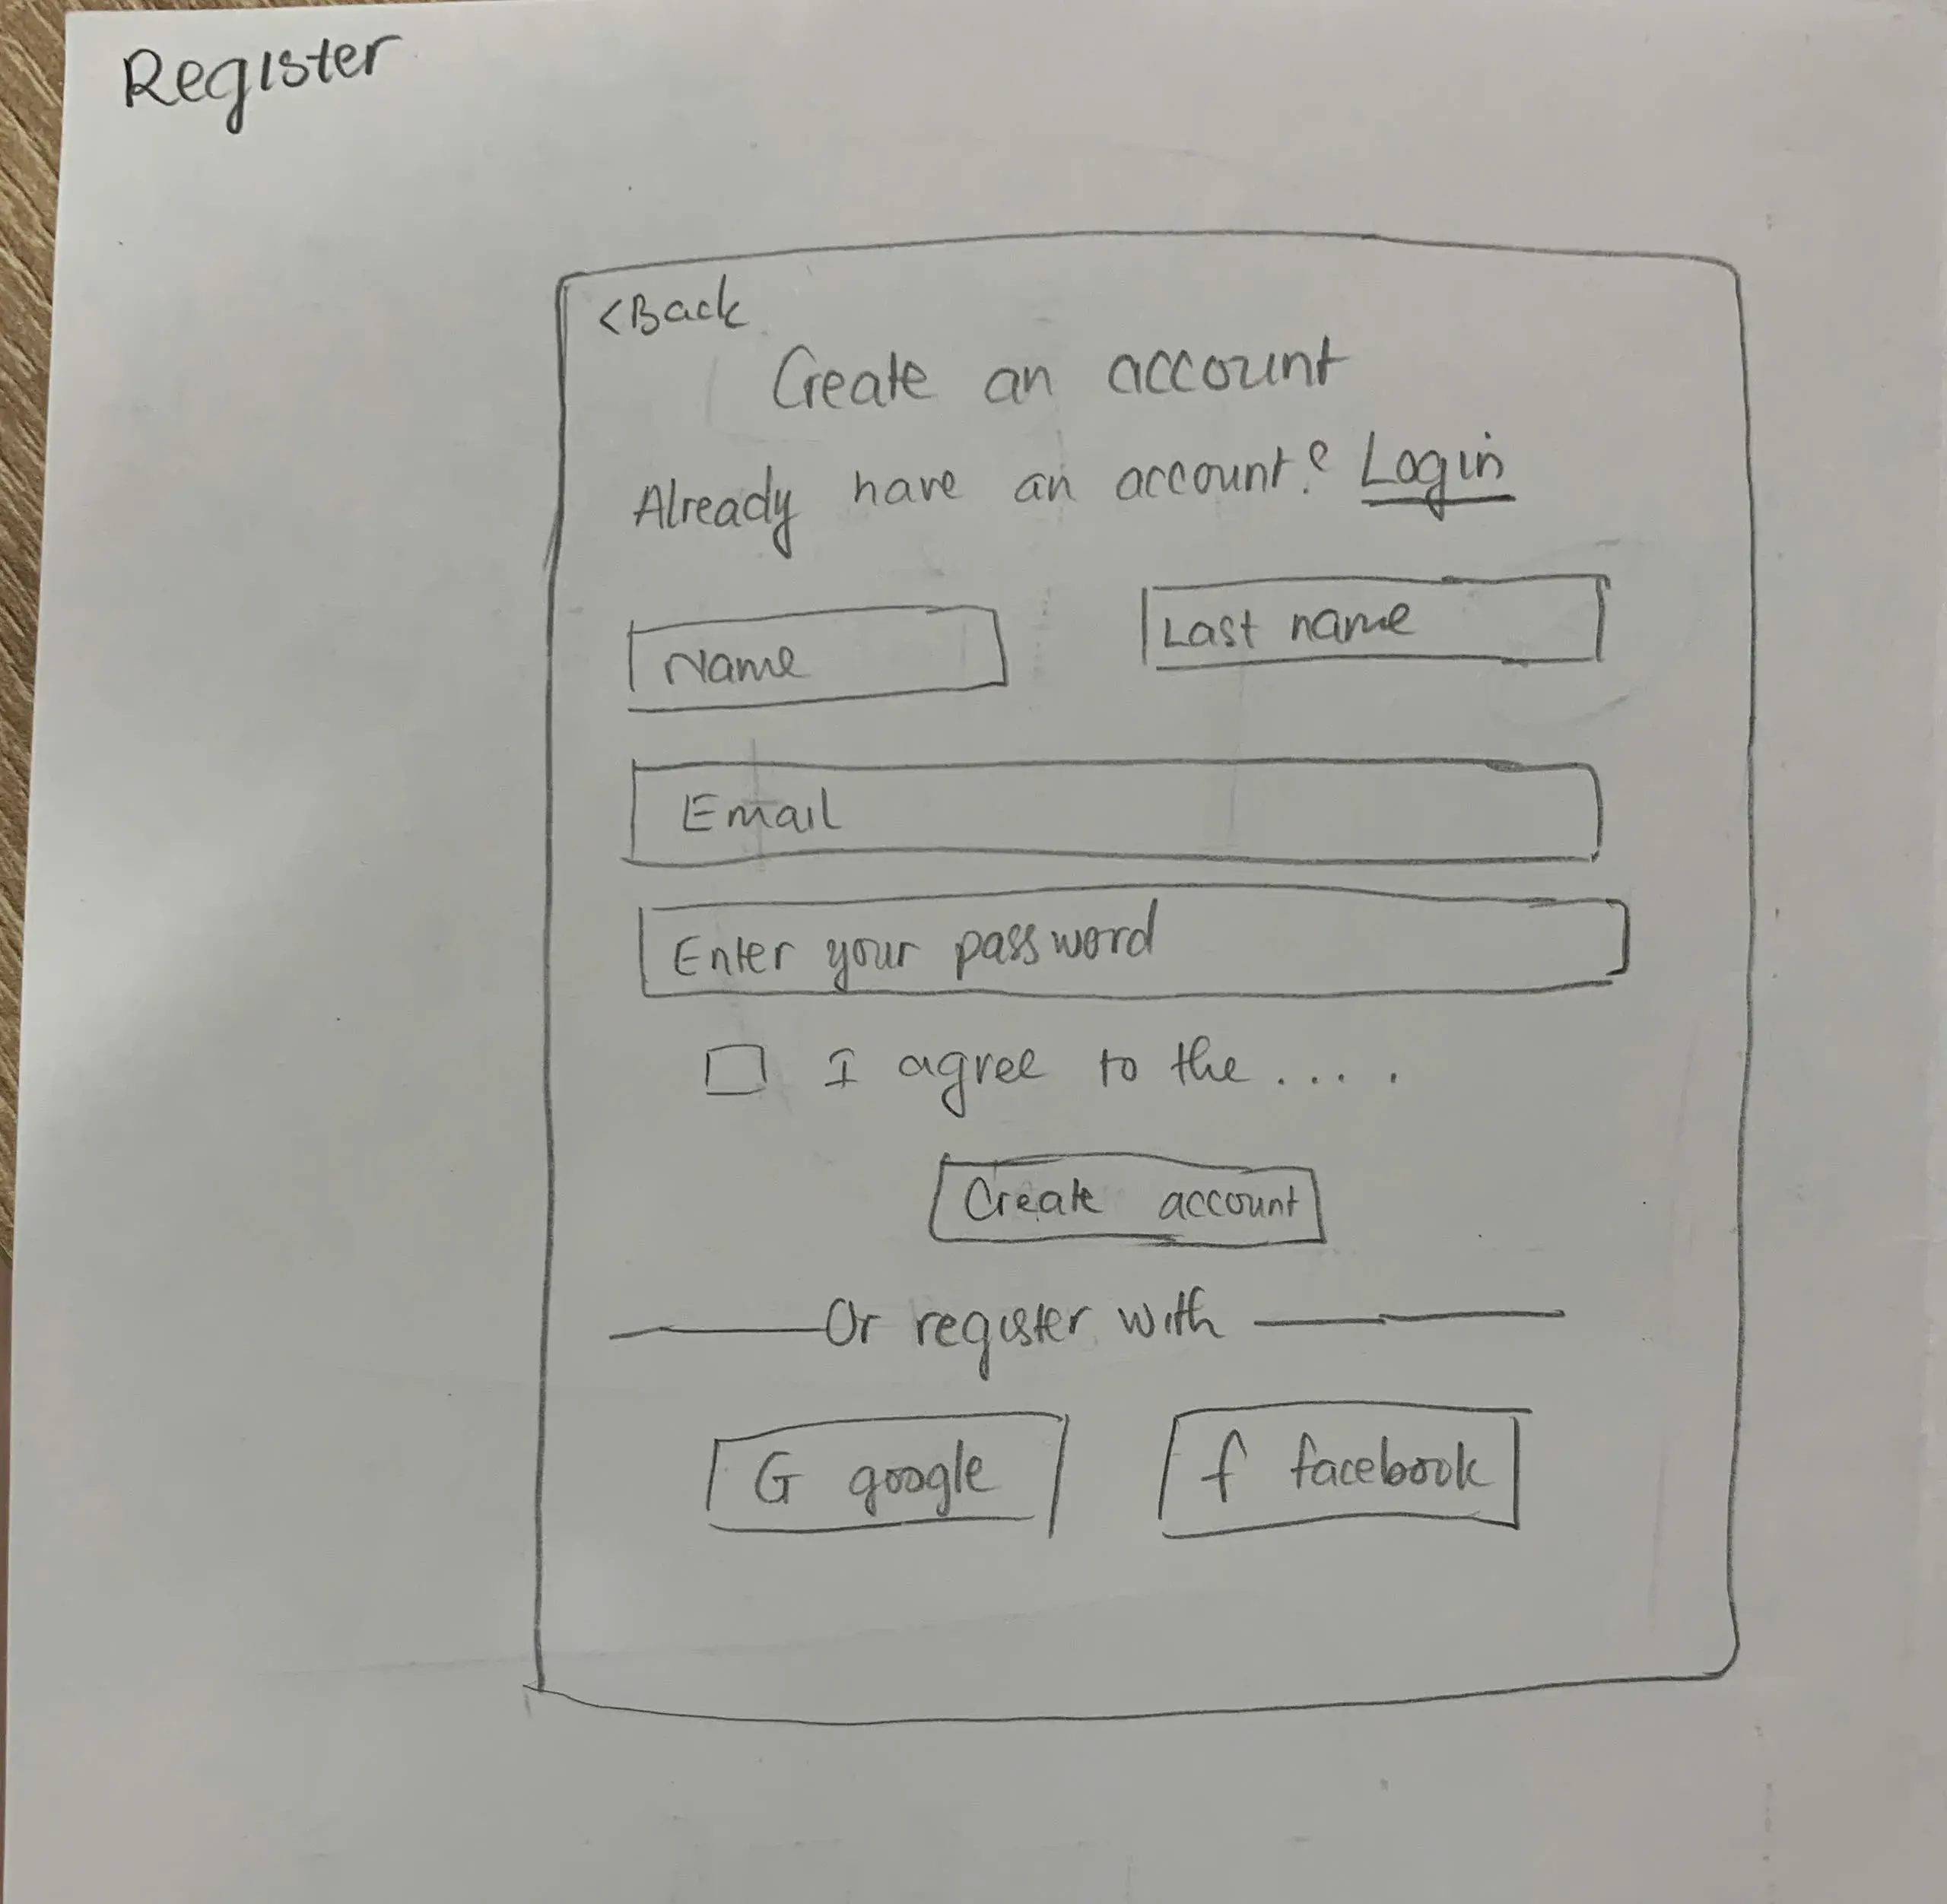 Register
<Back
Create an account
Already have an account? Login
Name
Last name
Email
Enter your password
I agree to the ....
Create account
Or register with
G google
f facebook